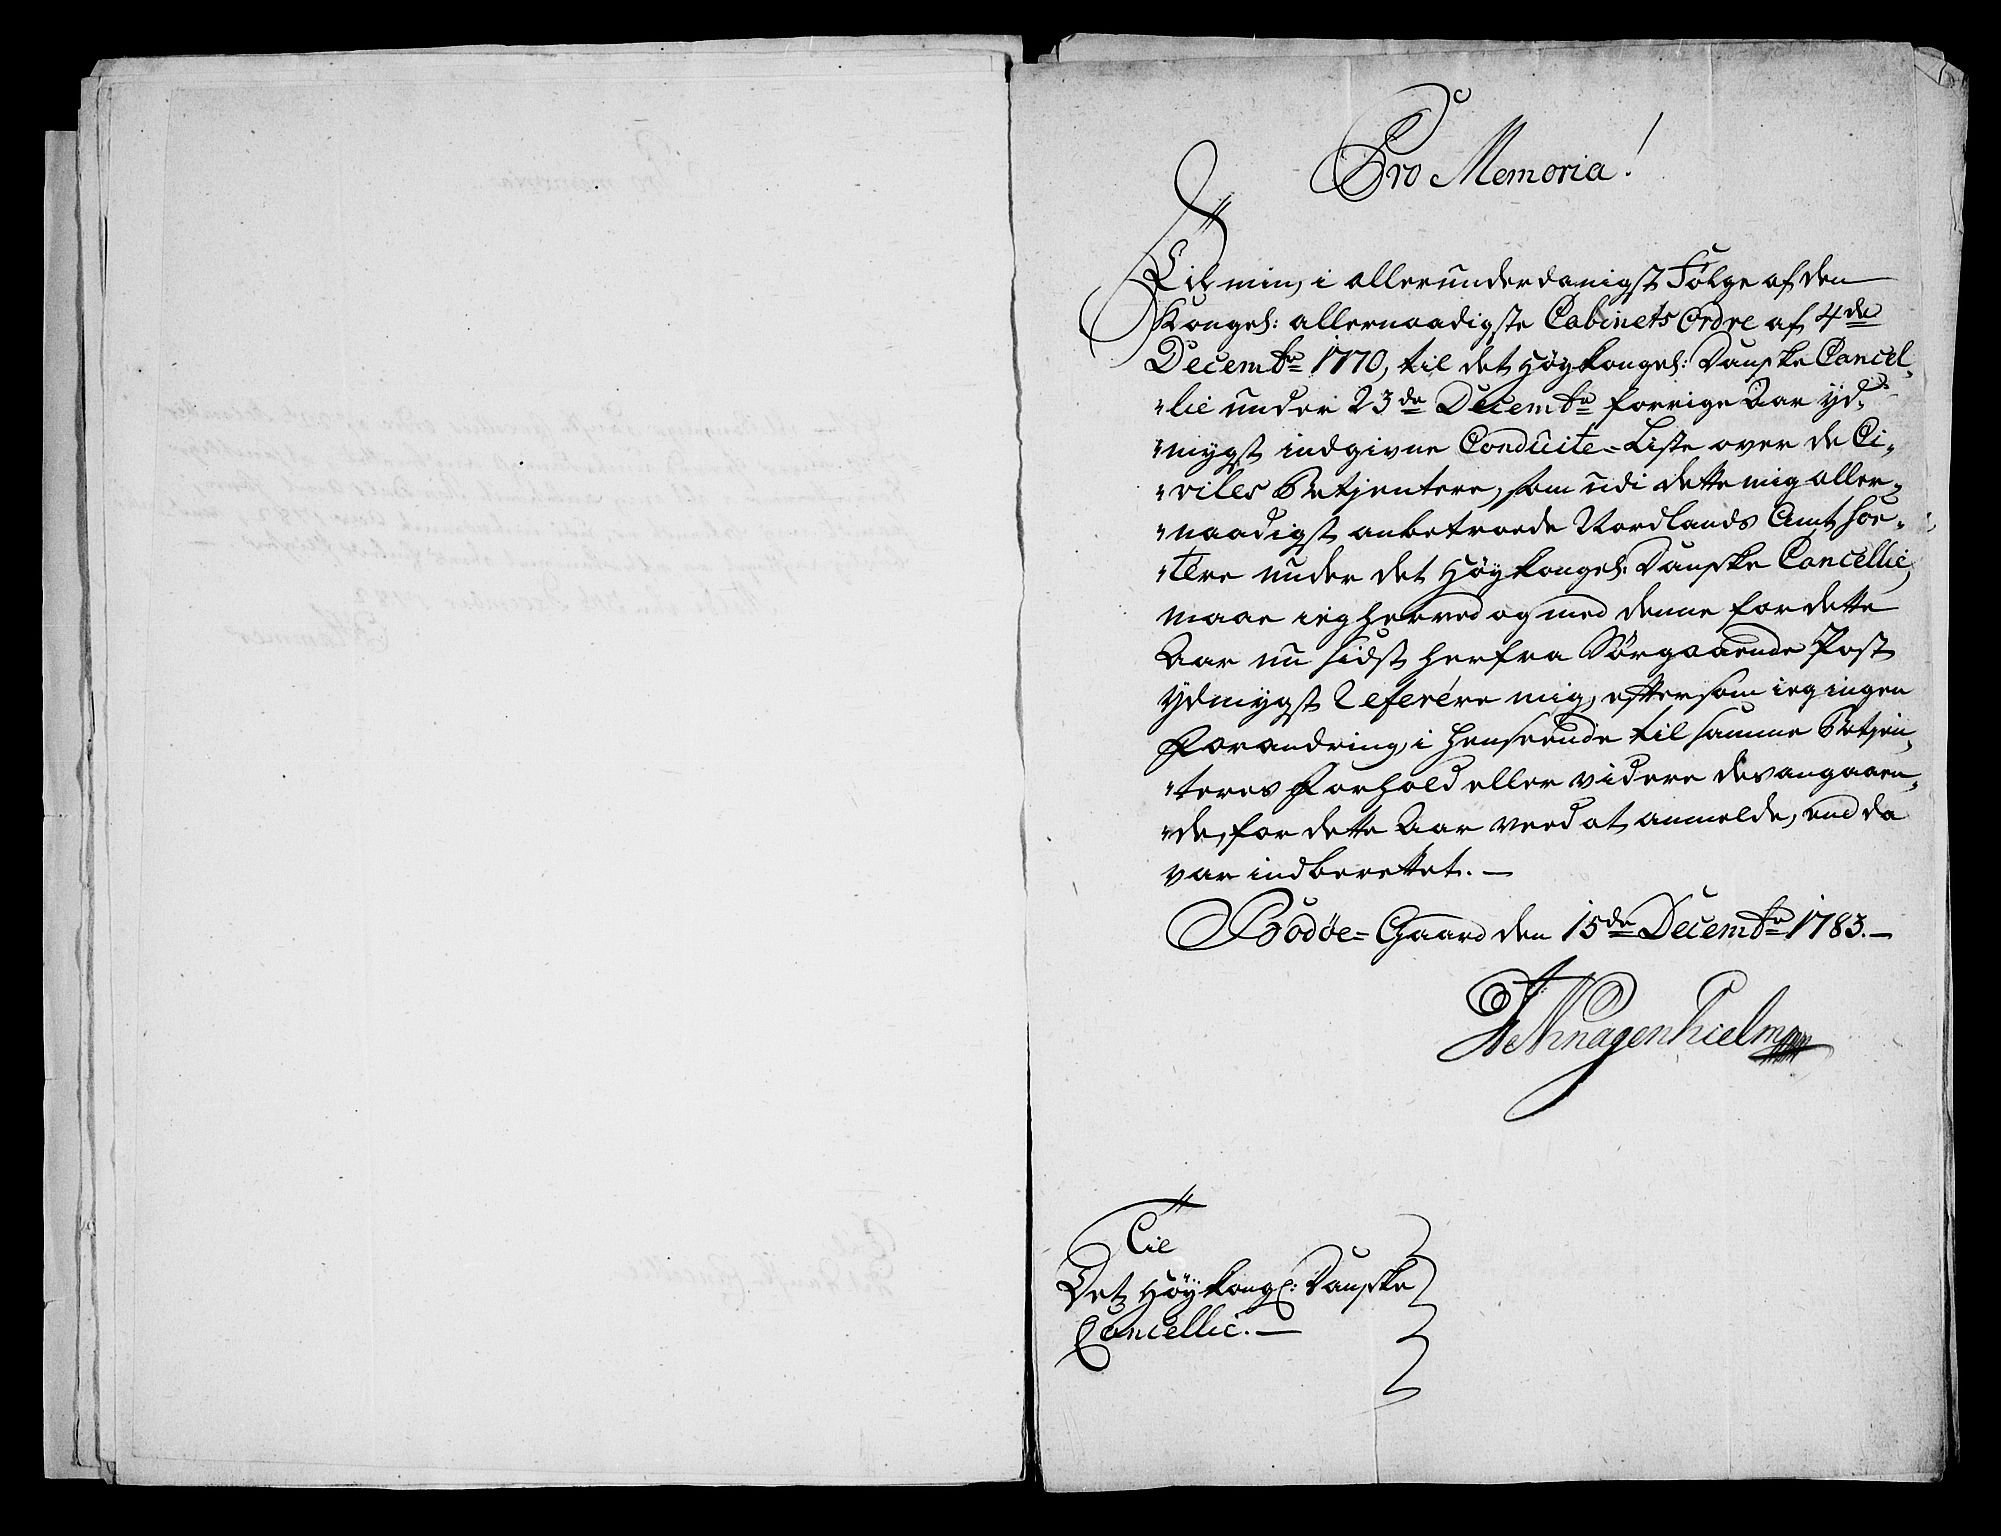 Pro Memoria!
Til min, i allerunderdanigst Følge af den
Kongel: allernaadigste Cabinets Ordre af 4de
Decembr 1770, til det Høykongel: Danske Cancel,
"lie under 23de Decembr forrige Aar yd,
"mygst indgivne Conduite=Liste over de Ci,
"viles Betjentere, som udi dette mig aller,
"naadigst anbetroede Nordlands Amt sor,
"tere under det Høykongel: Danske Cancellie,
maae ieg herved og med denne for dette
Aar nu sidst herfra Sørgaaende Post
ydmygst Referére mig, eftersom ieg ingen
Forandring, i Henseende til samme Betjen,
"teres Forhold eller videre desangaaen,
"de, for dette Aar veed at anmelde, end da
var indberettet. —
Bodøe=Gaard den 15de Decembr 1783. —
Knagenhielm
Til
Det Høykongl: Danske
Cancellie. —